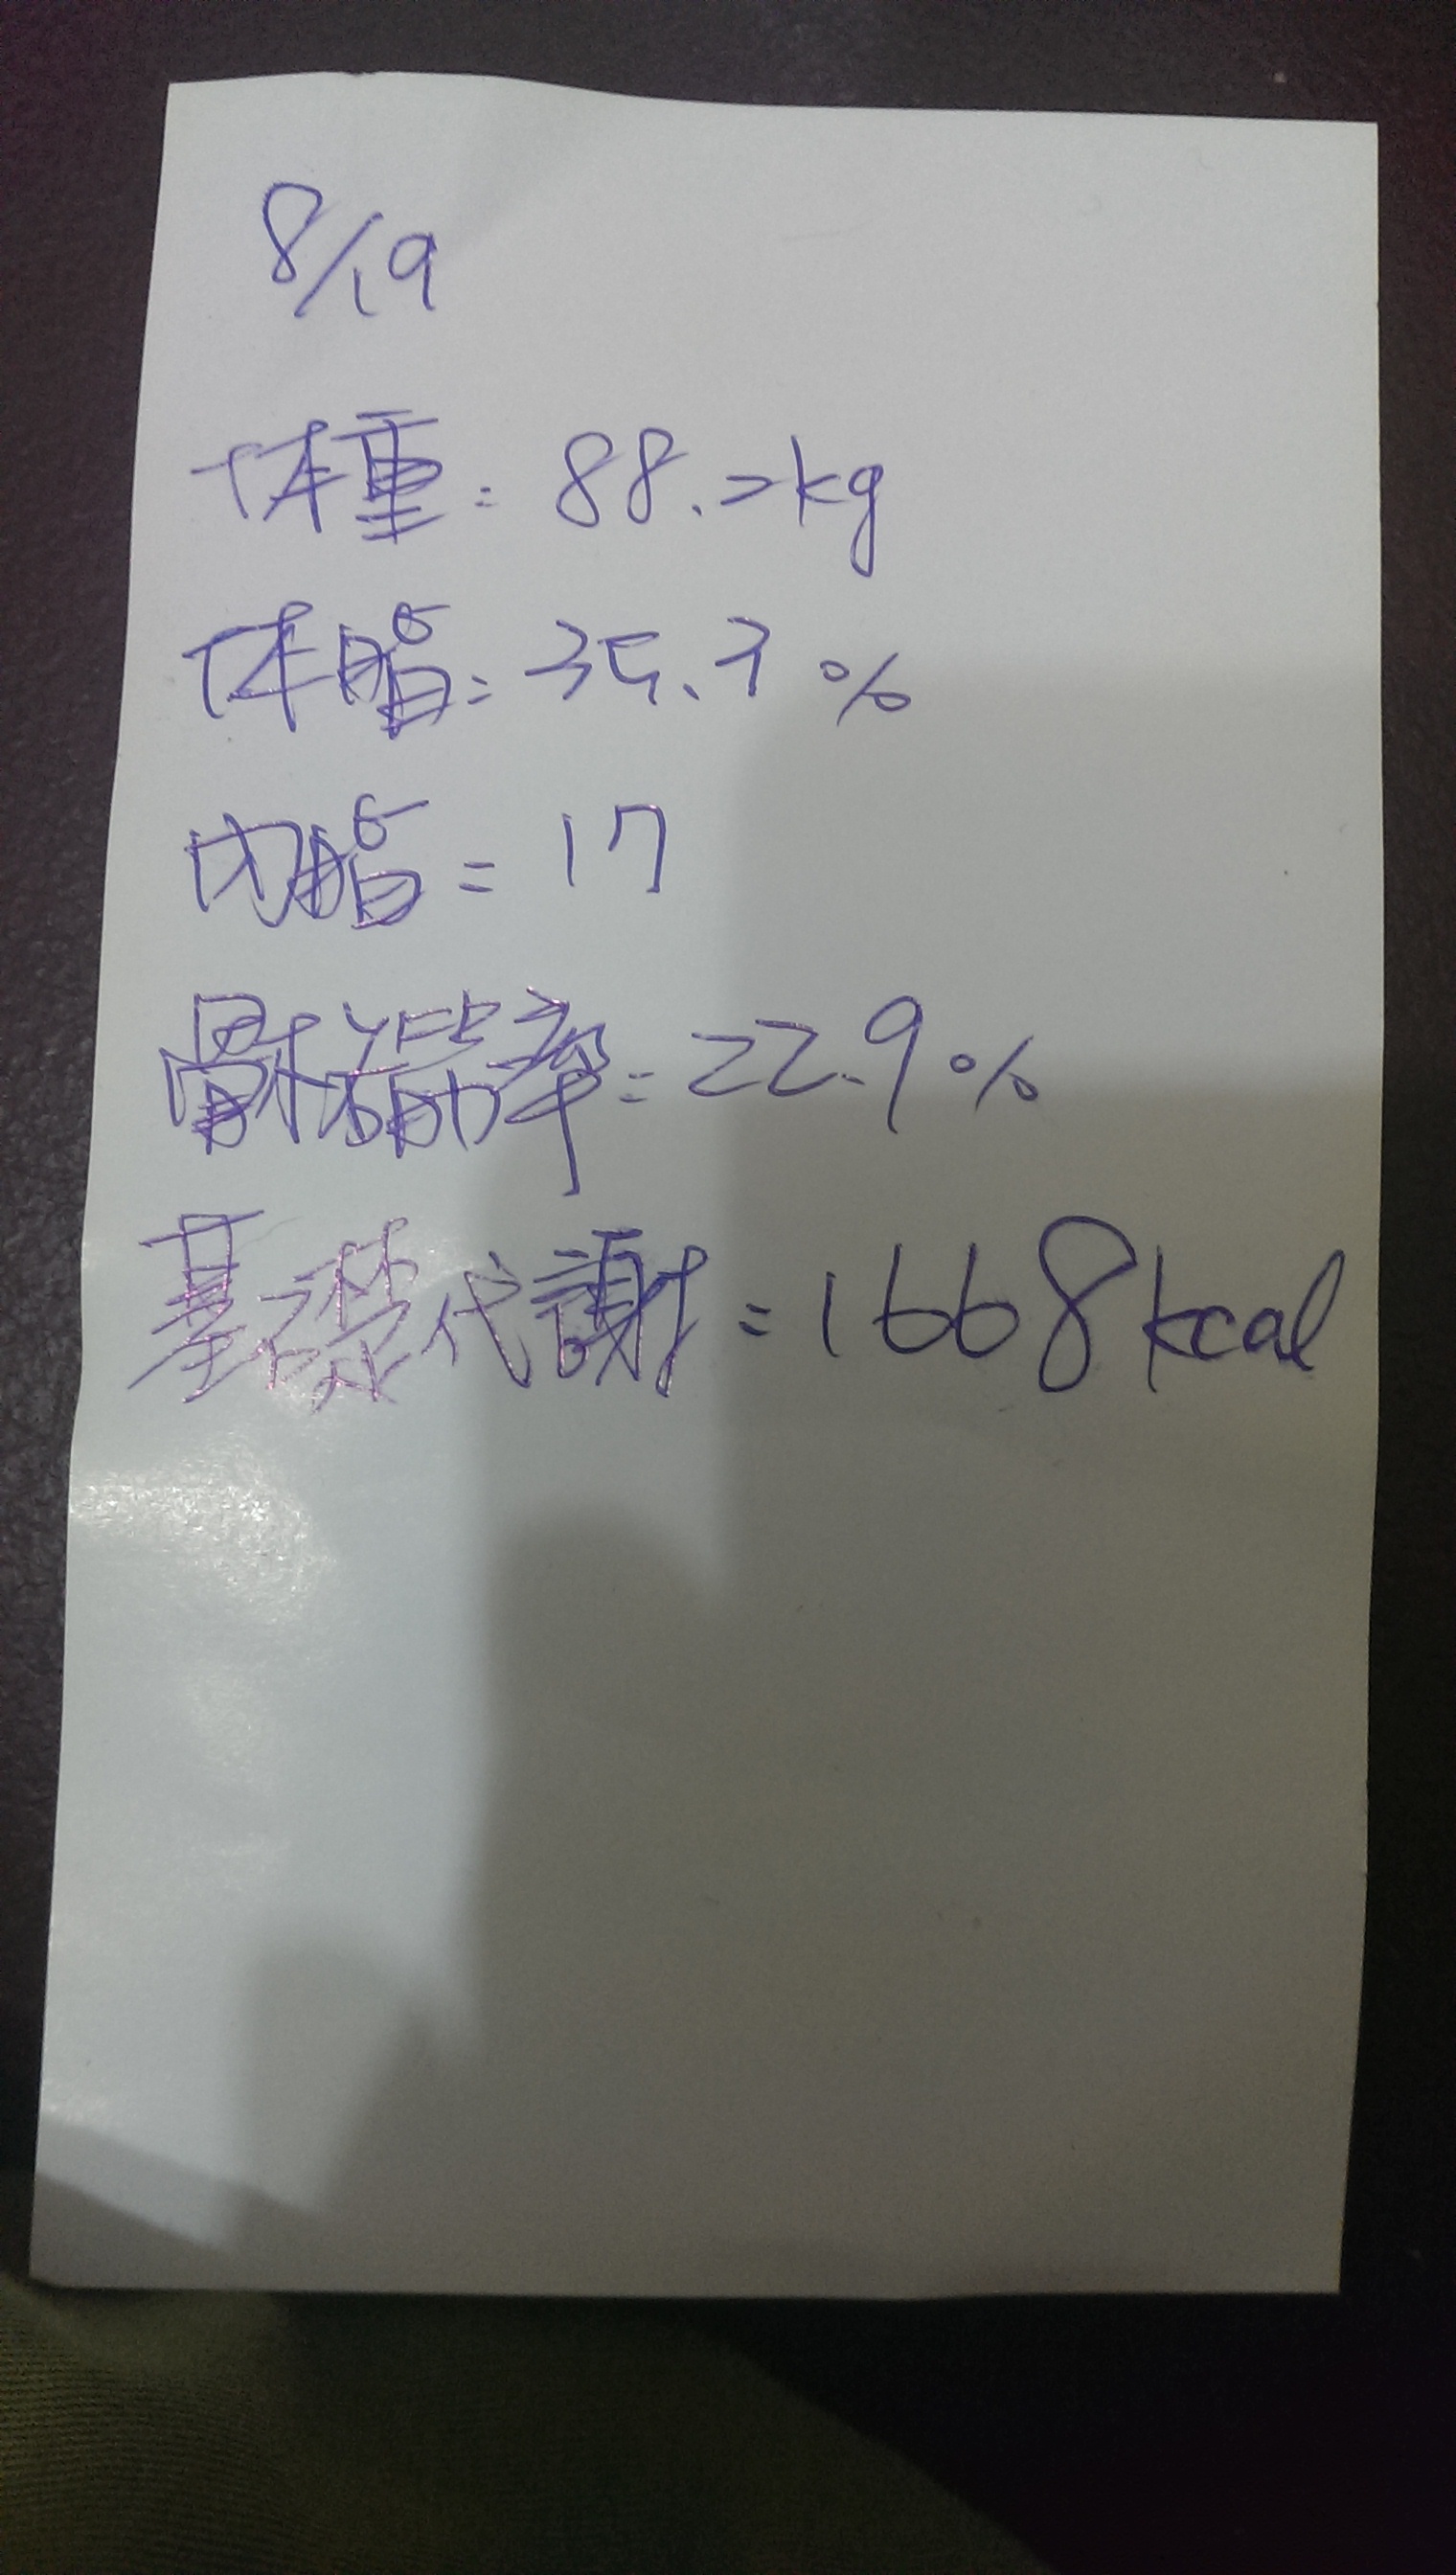 8/19
体重:88.2kg
体脂:35.3%
内脂=17
骨骼筋率=22.9%
基礎代謝=1668kcal